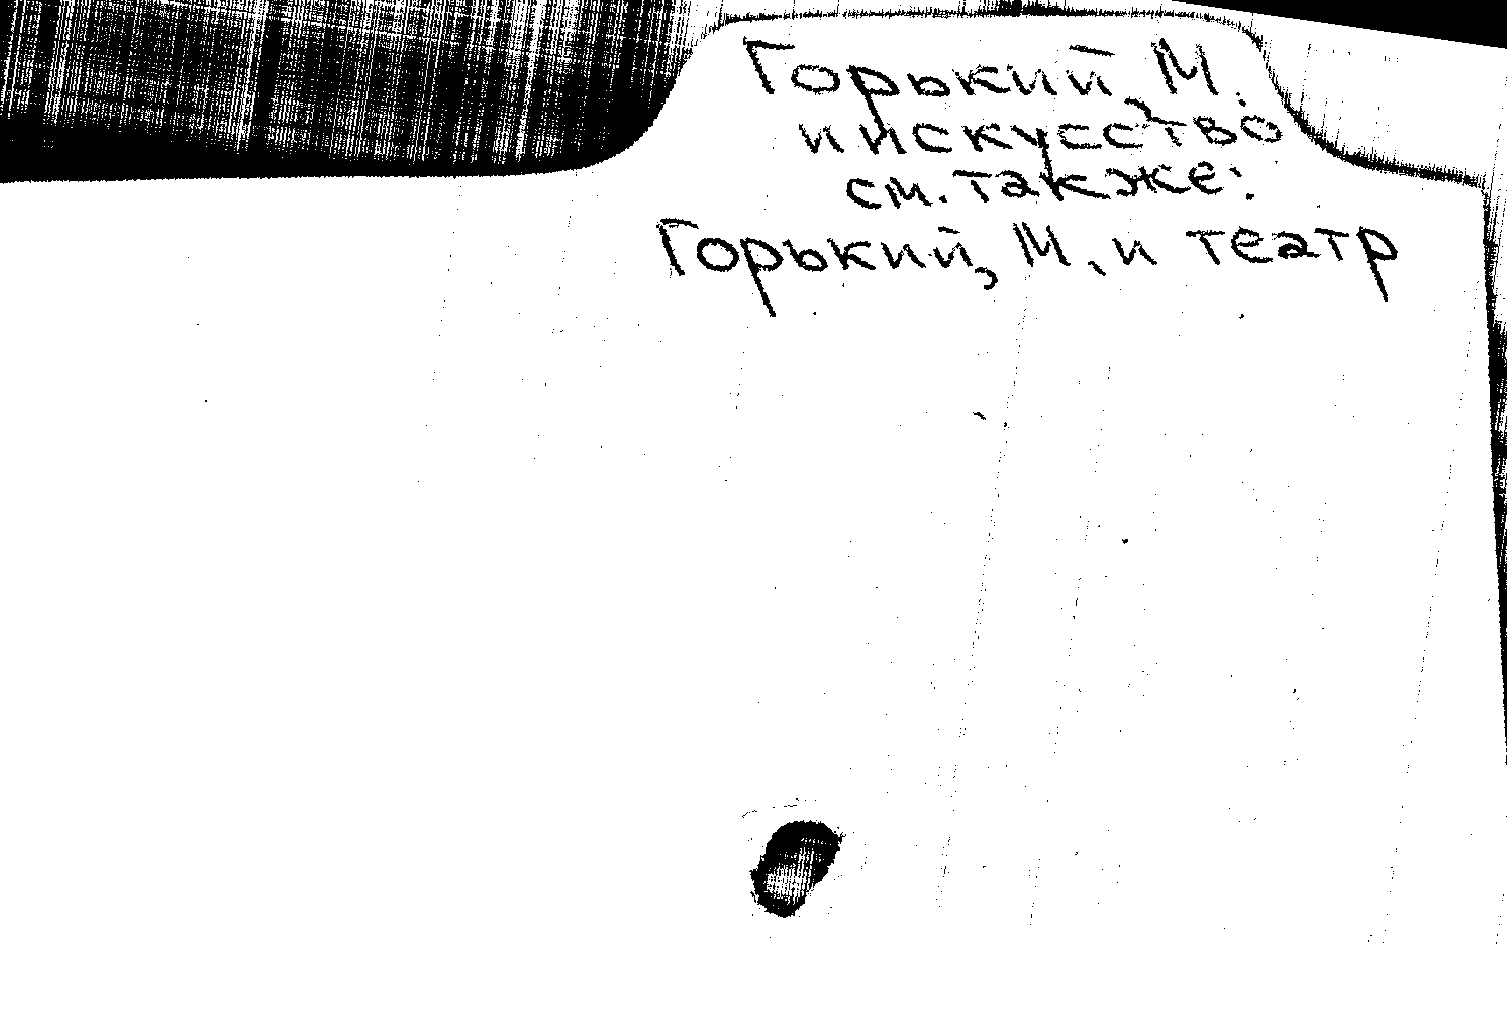 Горький, М.
и искусство
см. также:
Горький, М. и театр